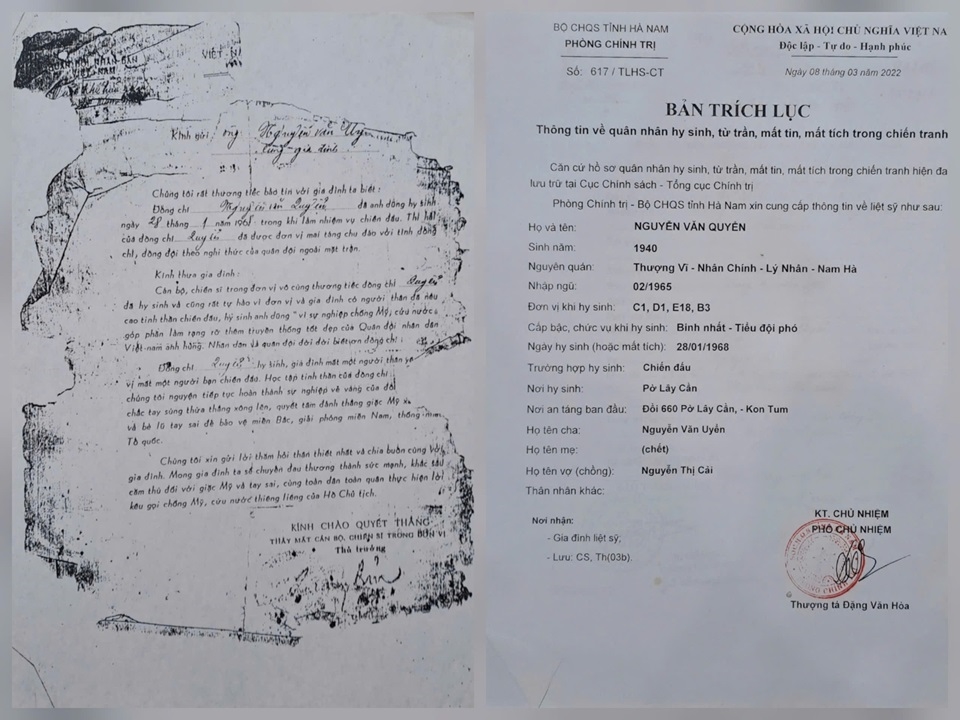 VIỆT N
Kính gửi ông Nguyễn Văn Uyển
cùng gia đình
Chúng tôi rất thương tiếc báo tin với gia đình ta biết:
Đồng chí Nguyễn Văn Quyền đã anh dũng hy sinh
ngày 28 tháng 1 năm 1968 trong khi làm nhiệm vụ chiến đấu. Thi hài
của đồng chí Quyền đã được đơn vị mai táng chu đáo với tình đồng
chí, đồng đội theo nghi thức của quân đội ngoài mặt trận.
Kính thưa gia đình:
Cán bộ, chiến sĩ trong đơn vị vô cùng thương tiếc đồng chí Quyền
đã hy sinh và cũng rất tự hào vì đơn vị và gia đình có người thân đã nêu
cao tinh thần chiến đấu, hy sinh anh dũng "vì sự nghiệp chống Mỹ, cứu nước
góp phần làm rạng rỡ thêm truyền thống tốt đẹp của Quân đội nhân dân
Việt-nam anh hùng. Nhân dân và quân đội đời đời biết ơn đồng chí
Đồng chí Quyền hy sinh, gia đình mất một người thân
vị mất một người bạn chiến đấu. Học tập tinh thần của đồng chí
chúng tôi nguyện tiếp tục hoàn thành sự nghiệp vẻ vang của
chắc tay súng thừa thắng xông lên, quyết tâm đánh thắng giặc Mỹ
và bè lũ tay sai để bảo vệ miền Bắc, giải phóng miền Nam, thống
Tổ quốc.
Chúng tôi xin gửi lời thăm hỏi thân thiết nhất và chia buồn cùng với
gia đình. Mong gia đình ta sẽ chuyển đau thương thành sức mạnh, khắc sâu
căm thù đối với giặc Mỹ và tay sai, cùng toàn dân toàn quân thực hiện lời
kêu gọi chống Mỹ, cứu nước thiêng liêng của Hồ Chủ tịch.
KÍNH CHÀO QUYẾT THẮNG
THAY MẶT CÁN BỘ, CHIẾN SĨ TRONG ĐƠN VỊ
Thủ trưởng
BỘ CHQS TỈNH HÀ NAM
PHÒNG CHÍNH TRỊ
Số: 617 / TLHS-CT
CỘNG HÒA XÃ HỘI CHỦ NGHĨA VIỆT NA
Độc lập - Tự do - Hạnh phúc
Ngày 08 tháng 03 năm 2022
BẢN TRÍCH LỤC
Thông tin về quân nhân hy sinh, từ trần, mất tin, mất tích trong chiến tranh
Căn cứ hồ sơ quân nhân hy sinh, từ trần, mất tin, mất tích trong chiến tranh hiện đa
lưu trữ tại Cục Chính sách - Tổng cục Chính trị
Phòng Chính trị - Bộ CHQS tỉnh Hà Nam xin cung cấp thông tin về liệt sỹ như sau:
Họ và tên: NGUYỄN VĂN QUYỀN
Sinh năm: 1940
Nguyên quán: Thượng Vĩ - Nhân Chính - Lý Nhân - Nam Hà
Nhập ngũ: 02/1965
Đơn vị khi hy sinh: C1, D1, E18, B3
Cấp bậc, chức vụ khi hy sinh: Binh nhất - Tiểu đội phó
Ngày hy sinh (hoặc mất tích): 28/01/1968
Trường hợp hy sinh: Chiến đấu
Nơi hy sinh: Pờ Lây Cần
Nơi an táng ban đầu: Đồi 660 Pờ Lây Cần, - Kon Tum
Họ tên cha: Nguyễn Văn Uyển
Họ tên mẹ: (chết)
Họ tên vợ (chồng): Nguyễn Thị Cải
Thân nhân khác:
Nơi nhận:
- Gia đình liệt sỹ;
- Lưu: CS, Th(03b).
KT. CHỦ NHIỆM
PHÓ CHỦ NHIỆM
Thượng tá Đặng Văn Hòa